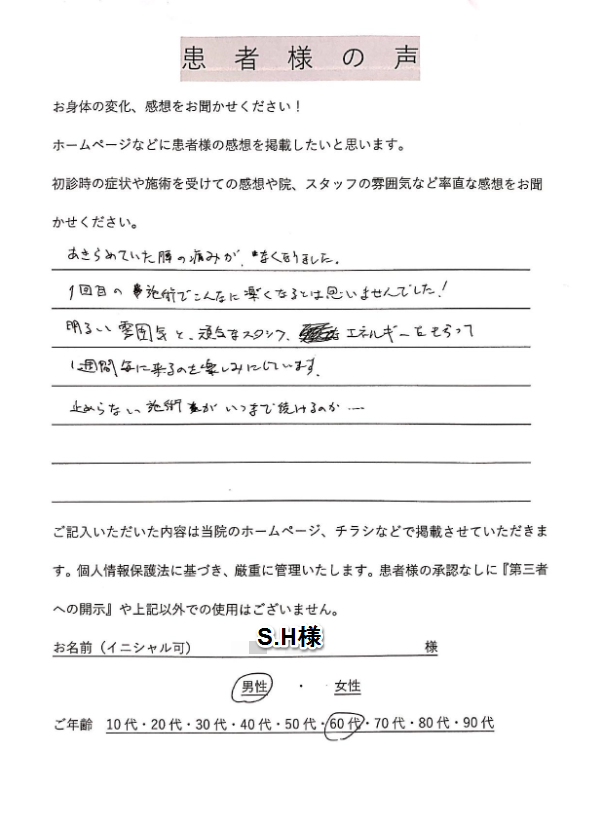 患者様の声
お身体の変化、感想をお聞かせください！
ホームページなどに患者様の感想を掲載したいと思います。
初診時の症状や施術を受けての感想や院、スタッフの雰囲気など率直な感想をお聞
かせください。
あきらめていた腰の痛みが、なくなりました。
1回目の施術でこんなに楽になるとは思いませんでした！
明るい雰囲気と、元気なスタッフ、エネルギーをもらって
1週間毎に来るのを楽しみにしています。
止めらない、施術がいつまで続けるのか…
ご記入いただいた内容は当院のホームページ、チラシなどで掲載させていただきま
す。個人情報保護法に基づき、厳重に管理いたします。患者様の承認なしに『第三者
への開示』や上記以外での使用はございません。
お名前（イニシャル可） S.H様 様
男性 ・ 女性
ご年齢 10代・20代・30代・40代・50代・60代・70代・80代・90代